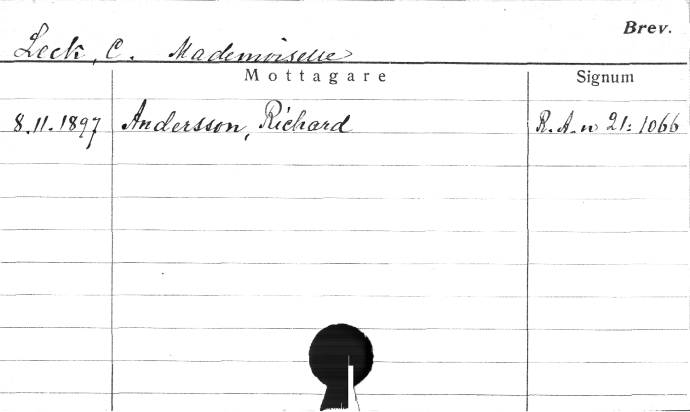 Brev.
Leck, C. Mademoiselle
Mottagare Signum
8.11.1897 Andersson, Richard R.A. n 21: 1066